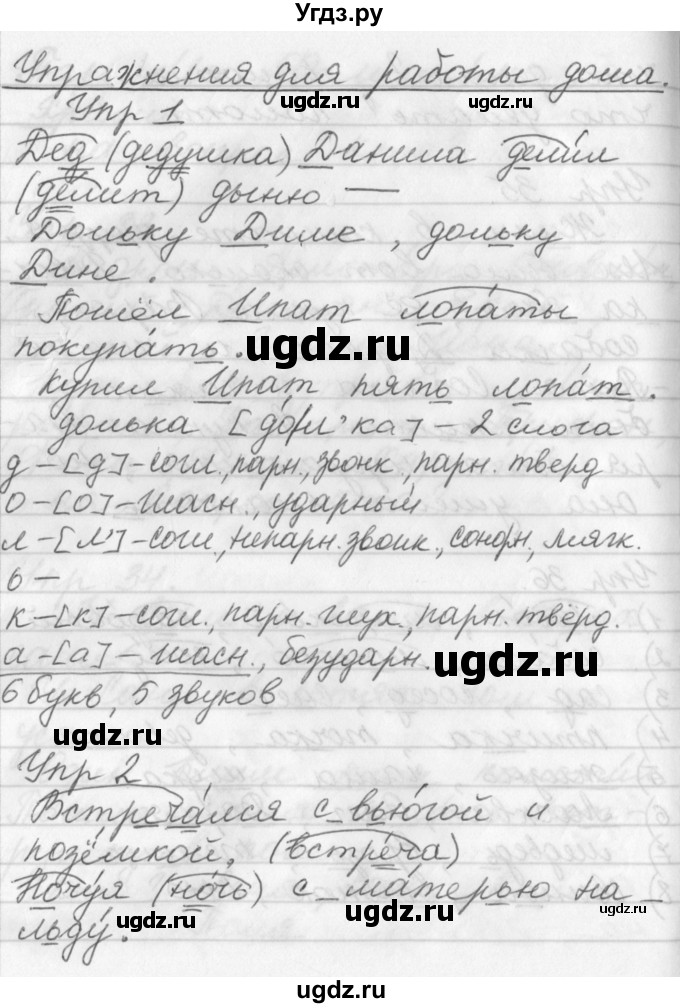 Угдз.ру
Упражнения для работы дома.
ugdz.ru ugdz.ru
Упр 1
Дед (дедушка) Данила делил
(делит) дыню —
Дольку Диме, дольку
Дине.
Пошёл Ипат лопаты
покупать.
ugdz.ru
Купил Ипат пять лопат.
долька [дол’ка] – 2 слога
д – [д] – согл., парн., звонк., парн. тверд
о – [о] – гласн., ударный
л – [л’] – согл., непарн. звонк., сонорн., мягк.
ь –
к – [к] – согл., парн. глух., парн. твёрд.
а – [а] – гласн., безударн.
ugdz.ru
6 букв, 5 звуков
ugdz.ru
ugdz.ru
Упр 2
Встречался с вьюгой и
позёмкой, (встреча)
Ночуя (ночь) с матерью на
льду.
ugdz.ru ugdz.ru ugdz.ru
ugdz.ru